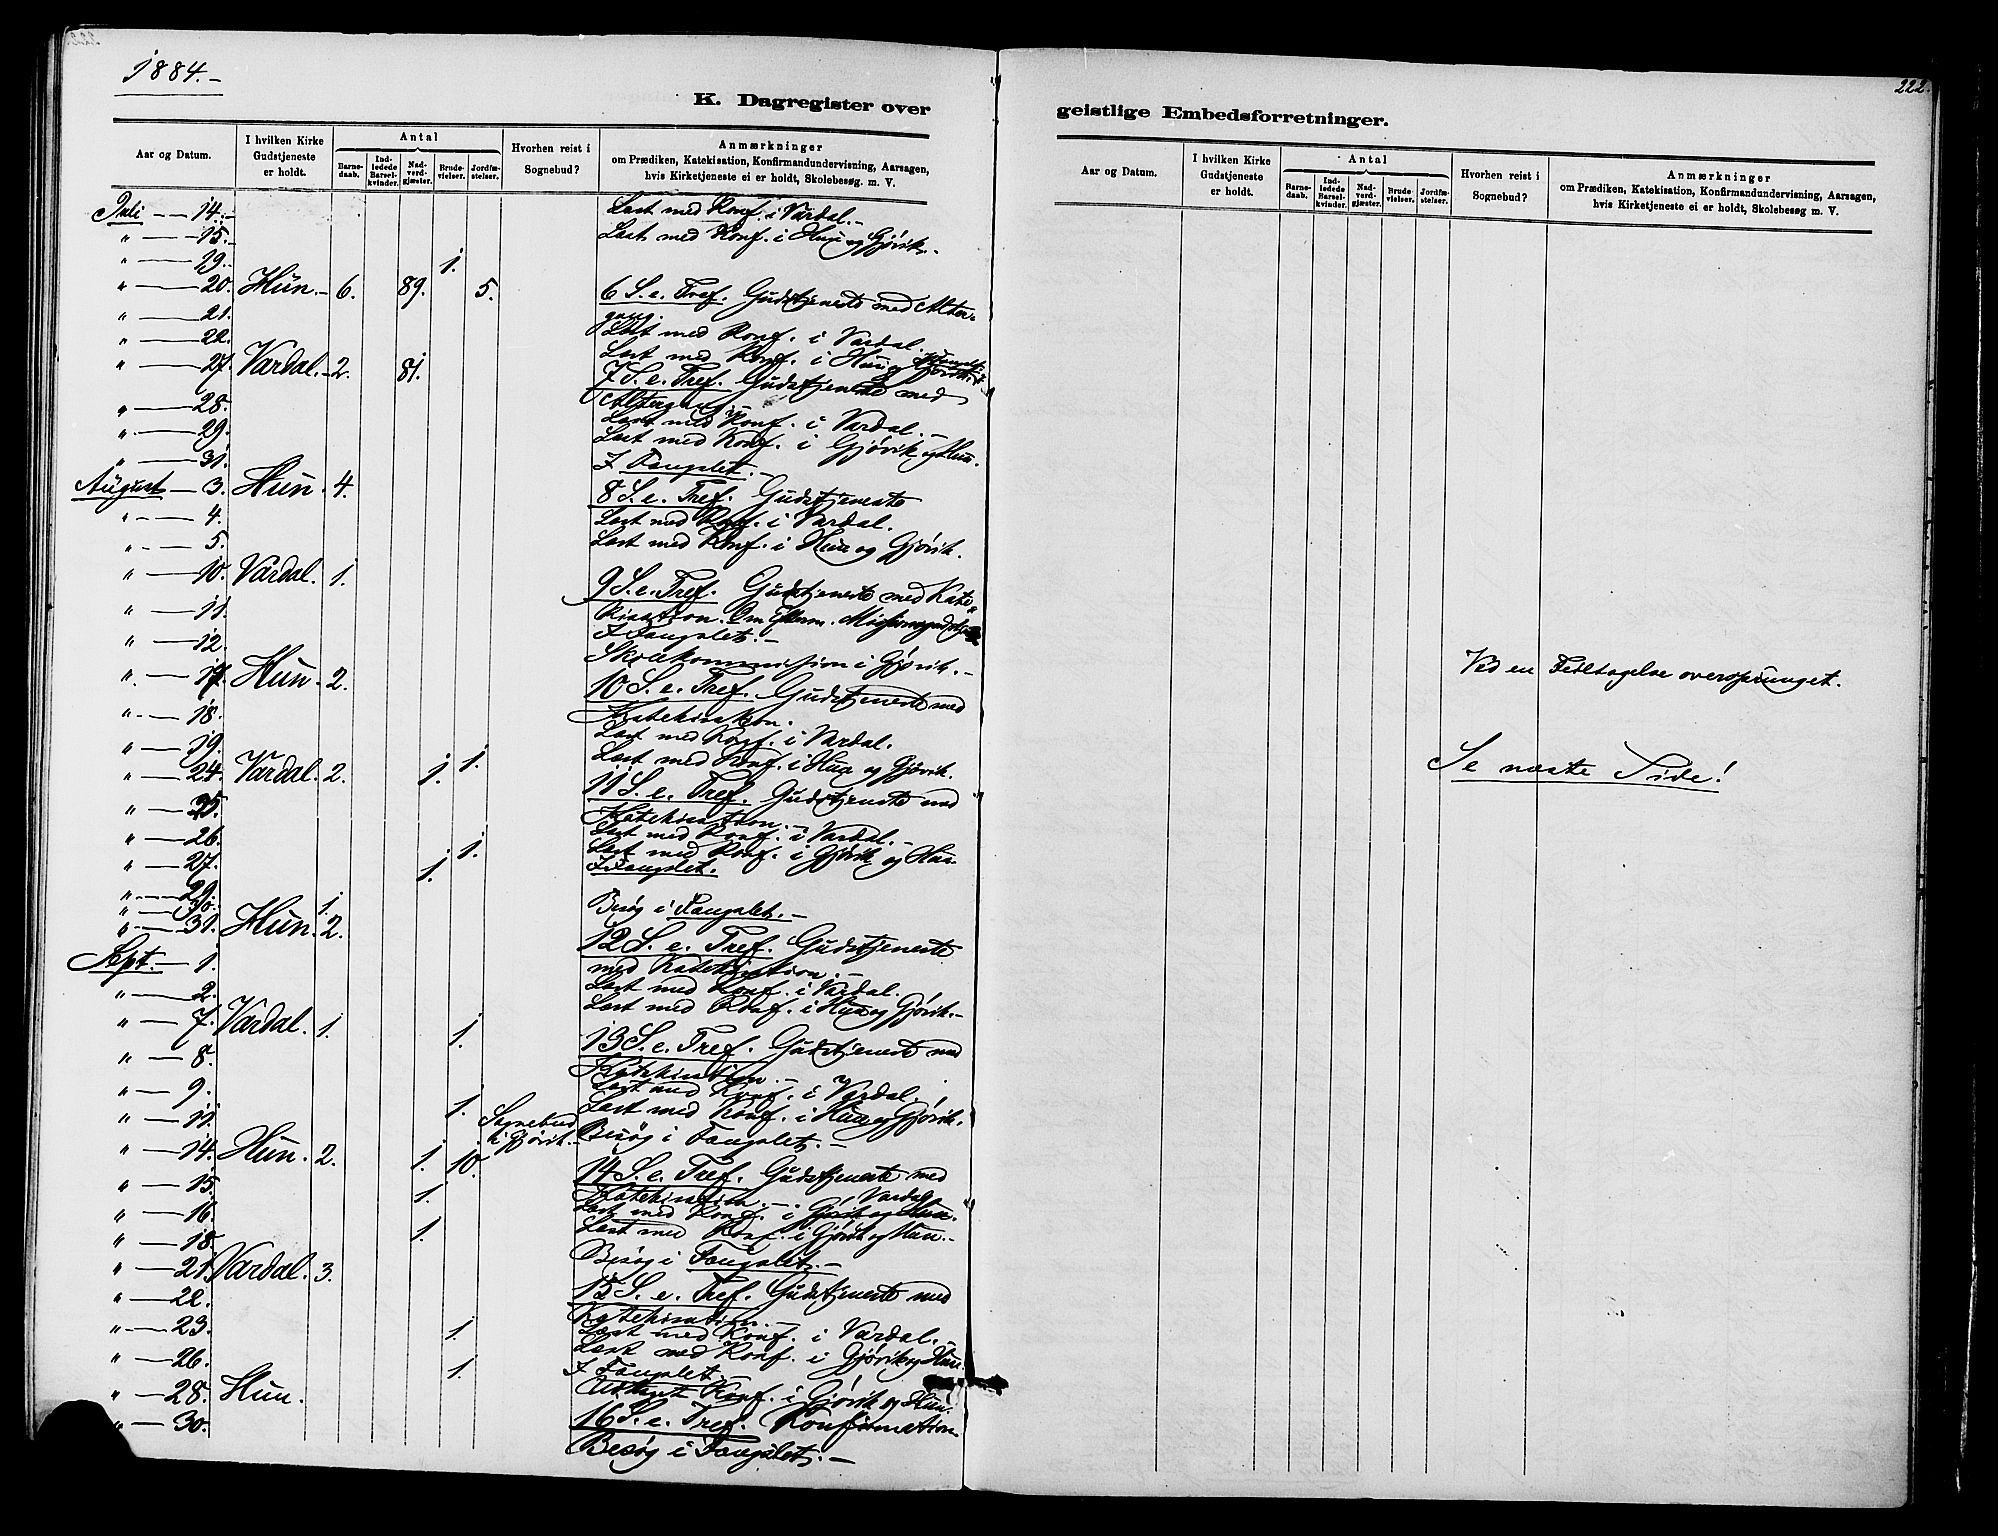 1884.-
K. Dagregister over
Aar og Datum.
I hvilken Kirke Gudstjeneste er holdt.
Antal
Barnedaab.
Indledede Barselkvinder.
Nadverdgjæster.
Brudevielser.
Jordfæstelser.
Hvorhen reist i Sognebud?
Anmærkninger
om Prædiken, Katekisation, Konfirmandundervisning, Aarsagen,
hvis Kirketjeneste ei er holdt, Skolebesøg m. V.
Juli - - 14. - Læst med Konf. i Vardal. -
" — 15. - Læst med Konf. i Hun og Gjøvik. -
" — 19. 1.
" — 20. Hun. - 6. 89. 5. 6 S. e. Tref. Gudstjeneste med Alter-
gang.
" — 21. Læst med Konf. i Vardal.
" — 22. Læst med Konf. i Hun og Gjøvik.
" — 27. Vardal. - 2. 81. 7 S. e. Tref. Gudstjeneste med
Altergang. -
" — 28. Læst med Konf. i Vardal. -
" — 29. Læst med Konf. i Gjøvik og Hun.
" — 31. I Fængslet. -
August — 3. Hun. 4. 8 S. e. Tref. Gudstjeneste
" — 4. Læst med Konf. i Vardal.
" — 5. Læst med Konf. i Hun og Gjøvik.
" — 10. Vardal. 1. 9 S. e. Tref. Gudstjeneste med Kate-
kisation. - Om Efterm.
" — 11. I Fængslet. -
" — 12. Skolekommission i Gjøvik. -
" — 17. Hun. 2. 10 S. e. Tref. Gudstjeneste med
Katekisation.
" — 18. Læst med Konf. i Vardal.
" — 19. Læst med Konf. i Hun og Gjøvik.
" — 24. Vardal. 2. 1. 1. 11 S. e. Tref. Gudstjeneste med
Katekisation. -
" — 25. Læst med Konf. i Vardal. -
" — 26. 1. Læst med Konf. i Gjøvik og Hun.
" — 27. 1. I Fængslet.
" — 29.
" — 30. 1. Besøg i Fængslet. -
" — 31. Hun. 2. 12 S. e. Tref. Gudstjeneste
med Katekisation. -
Sept. — 1. Læst med Konf. i Vardal.
" — 2. Læst med Konf. i Hun og Gjøvik. -
" — 7. Vardal. 1. 1. 13 S. e. Tref. Gudstjeneste med
Katekisation. -
" — 8. Læst med Konf. i Vardal.
" — 9. 1. Læst med Konf. i Hun og Gjøvik.
" — 11. Sognebud i Gjøvik. - Besøg i Fængslet. -
" — 14. Hun. 2. 1. 10. 14 S. e. Tref. Gudstjeneste med
Katekisation. -
" — 15. 1. Læst med Konf. i Gjøvik og Hun. Vardal
" — 16. 1. Læst med Konf. i Gjøvik og Hun. -
" — 18. Besøg i Fængslet. -
" — 21. Vardal. 3. 15 S. e. Tref. Gudstjeneste med
Katekisation. -
" — 22. Læst med Konf. i Vardal. -
" — 23. 1. Læst med Konf. i Gjøvik og Hun.
" — 26. 1. I Fængslet. -
Konf. i Gjøvik og Hun.
" — 28. Hun. 16 S. e. Tref. Konfirmation
" — 30. Besøg i Fængslet. -
222.
geistlige Embedsforretninger.
Aar og Datum.
I hvilken Kirke Gudstjeneste er holdt.
Antal
Barnedaab.
Indledede Barselkvinder.
Nadverdgjæster.
Brudevielser.
Jordfæstelser.
Hvorhen reist i Sognebud?
Anmærkninger
om Prædiken, Katekisation, Konfirmandundervisning, Aarsagen,
hvis Kirketjeneste ei er holdt, Skolebesøg m. V.
Ved en Feiltagelse oversprunget.
Se næste Side!